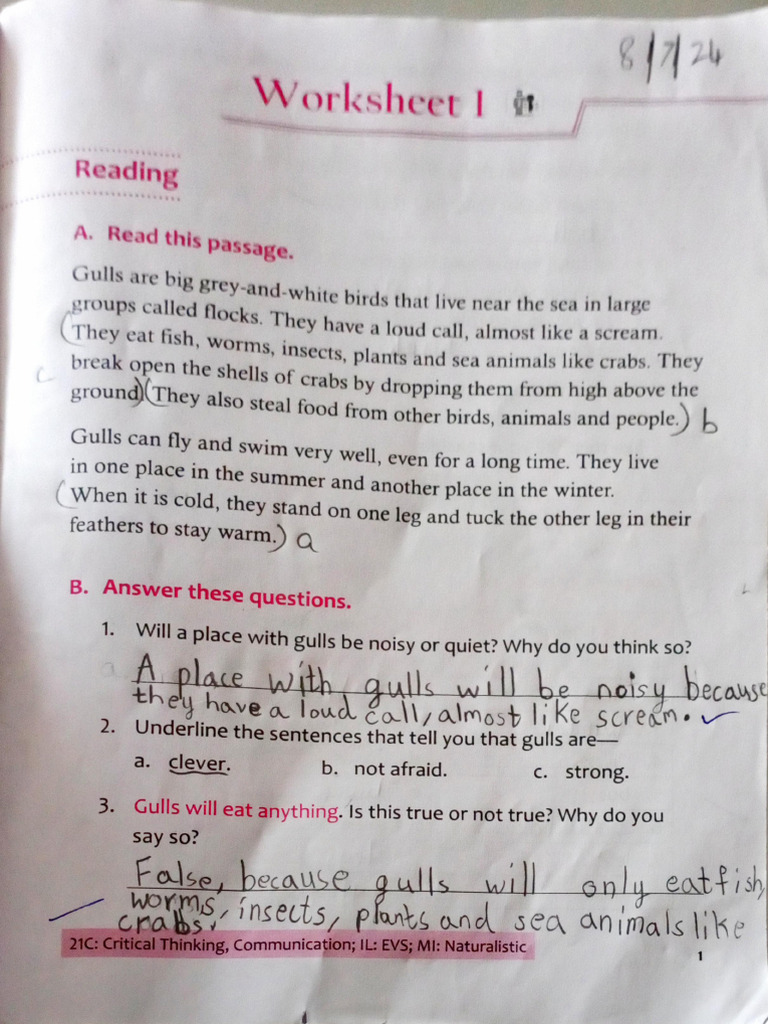 8/7/24
Worksheet 1
Reading
A. Read this passage.
Gulls are big grey-and-white birds that live near the sea in large
groups called flocks. They have a loud call, almost like a scream.
(They eat fish, worms, insects, plants and sea animals like crabs. They
c break open the shells of crabs by dropping them from high above the
ground.)(They also steal food from other birds, animals and people.) b
Gulls can fly and swim very well, even for a long time. They live
in one place in the summer and another place in the winter.
(When it is cold, they stand on one leg and tuck the other leg in their
feathers to stay warm.) a
B. Answer these questions.
1. Will a place with gulls be noisy or quiet? Why do you think so?
A place with gulls will be noisy because
they have a loud call, almost like scream.
2. Underline the sentences that tell you that gulls are—
a. clever. b. not afraid. c. strong.
3. Gulls will eat anything. Is this true or not true? Why do you
say so?
False, because gulls will only eat fish,
worms, insects, plants and sea animals like
crabs.
21C: Critical Thinking, Communication; IL: EVS; MI: Naturalistic
1